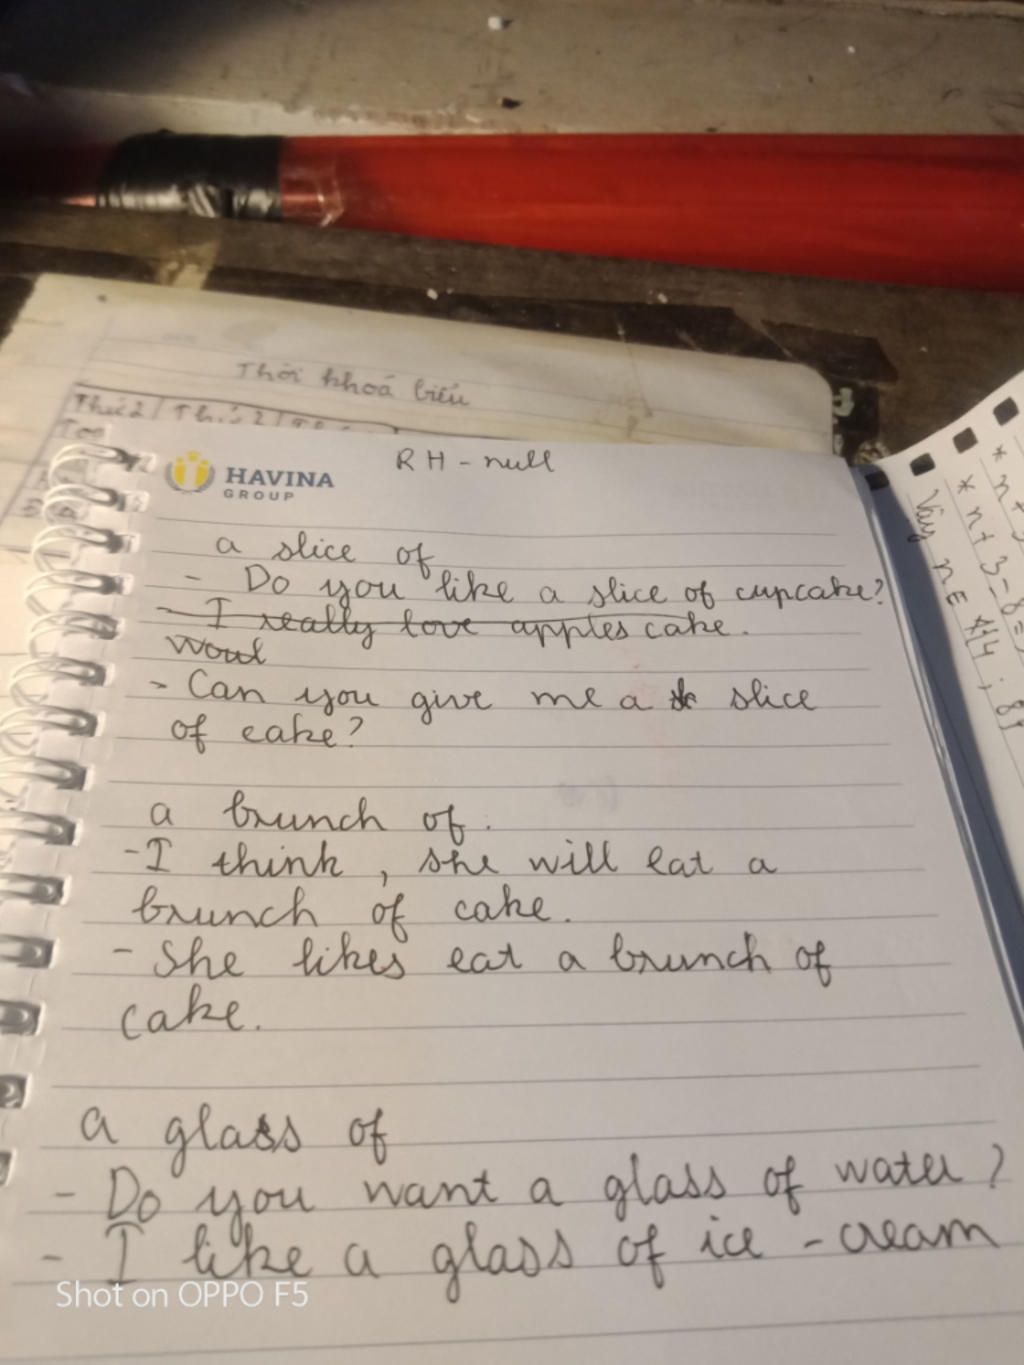 Thời khoá biểu
Thứ 2 Thứ 2
HAVINA
GROUP
RH-null
a slice of
- Do you like a slice of cupcake?
- I really love apples cake.
Woul
- Can you give me a slice
of cake?
a brunch of.
- I think, she will eat a
brunch of cake.
- She likes eat a brunch of
cake.
a glass of
- Do you want a glass of water?
- I like a glass of ice-cream
Shot on OPPO F5
* n+3
* n+3=8
Vậy n E